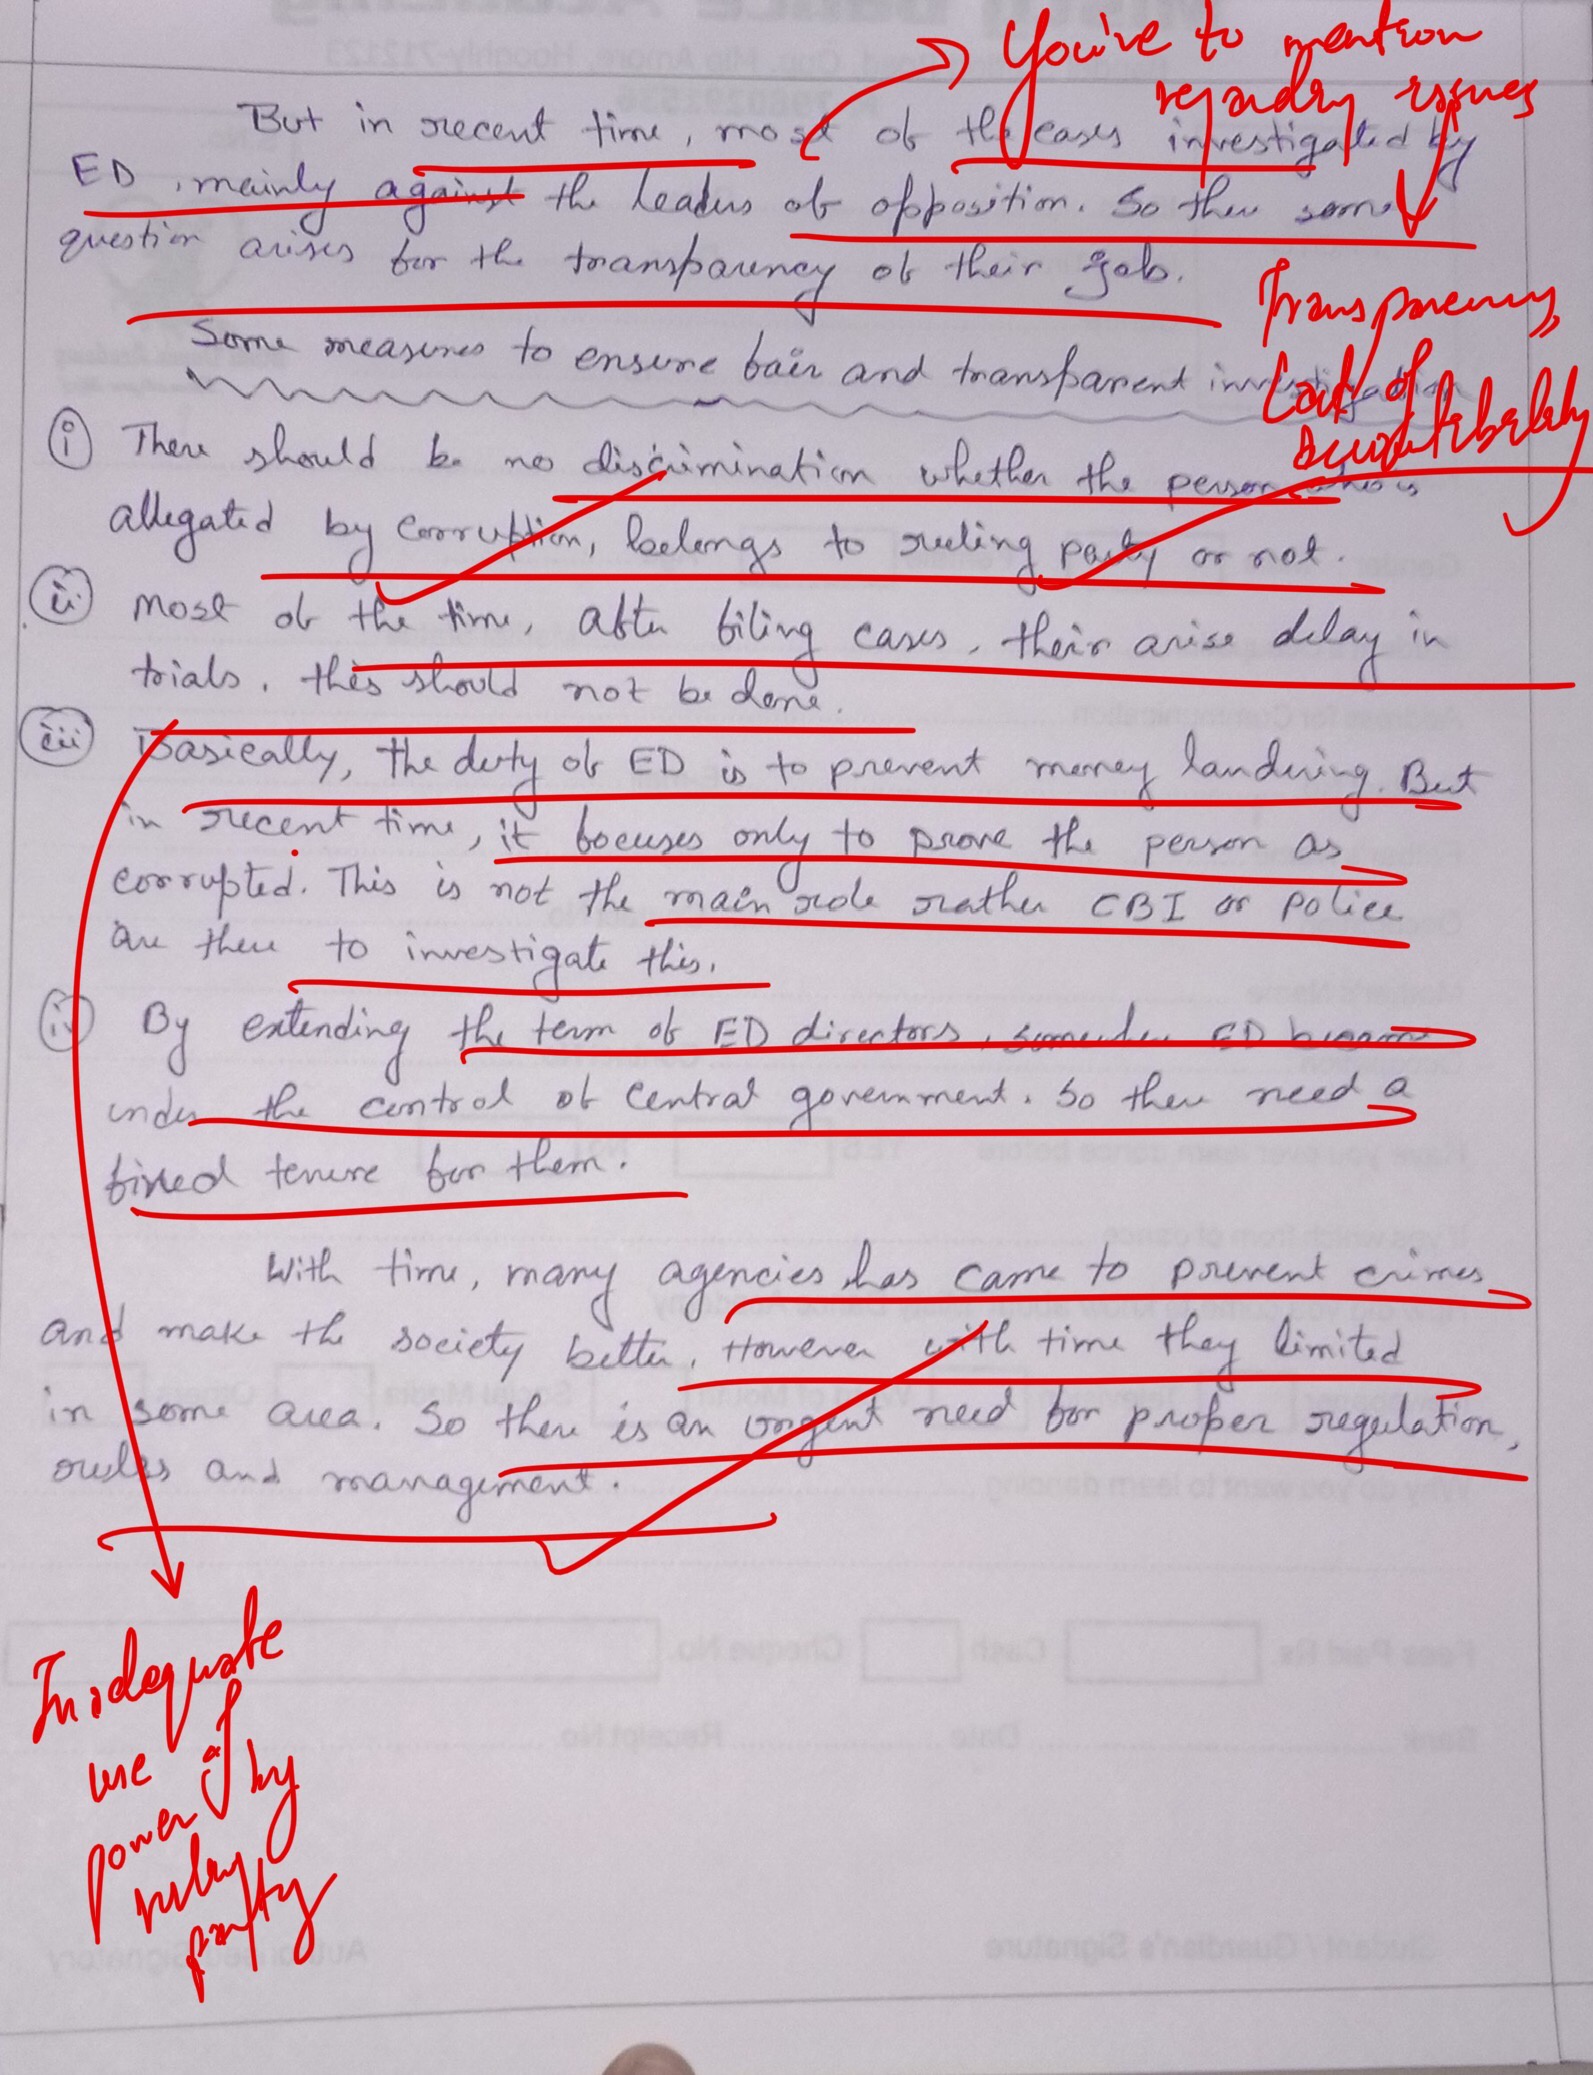 You've to mention
regarding issues
But in recent time, most of the cases investigated by
ED, mainly against the leaders of opposition. So there some
question arises for the transparency of their job.
Transparency,
Lack of
accountability
Some measures to ensure fair and transparent investigation
(i) There should be no discrimination whether the person who is
allegated by corruption, belongs to ruling party or not.
(ii) Most of the time, after filing cases, their arise delay in
trials. this should not be done.
(iii) Basically, the duty of ED is to prevent money landering. But
in recent time, it focuses only to prove the person as
corrupted. This is not the main role rather CBI or police
are there to investigate this.
(iv) By extending the term of ED directors, somewhere ED became
under the control of Central government. So there need a
fixed tenure for them.
With time, many agencies has came to prevent crimes
and make the society better. However with time they limited
in some area. So there is an urgent need for proper regulation,
rules and management.
Inadequate
use of
power by
ruling
party